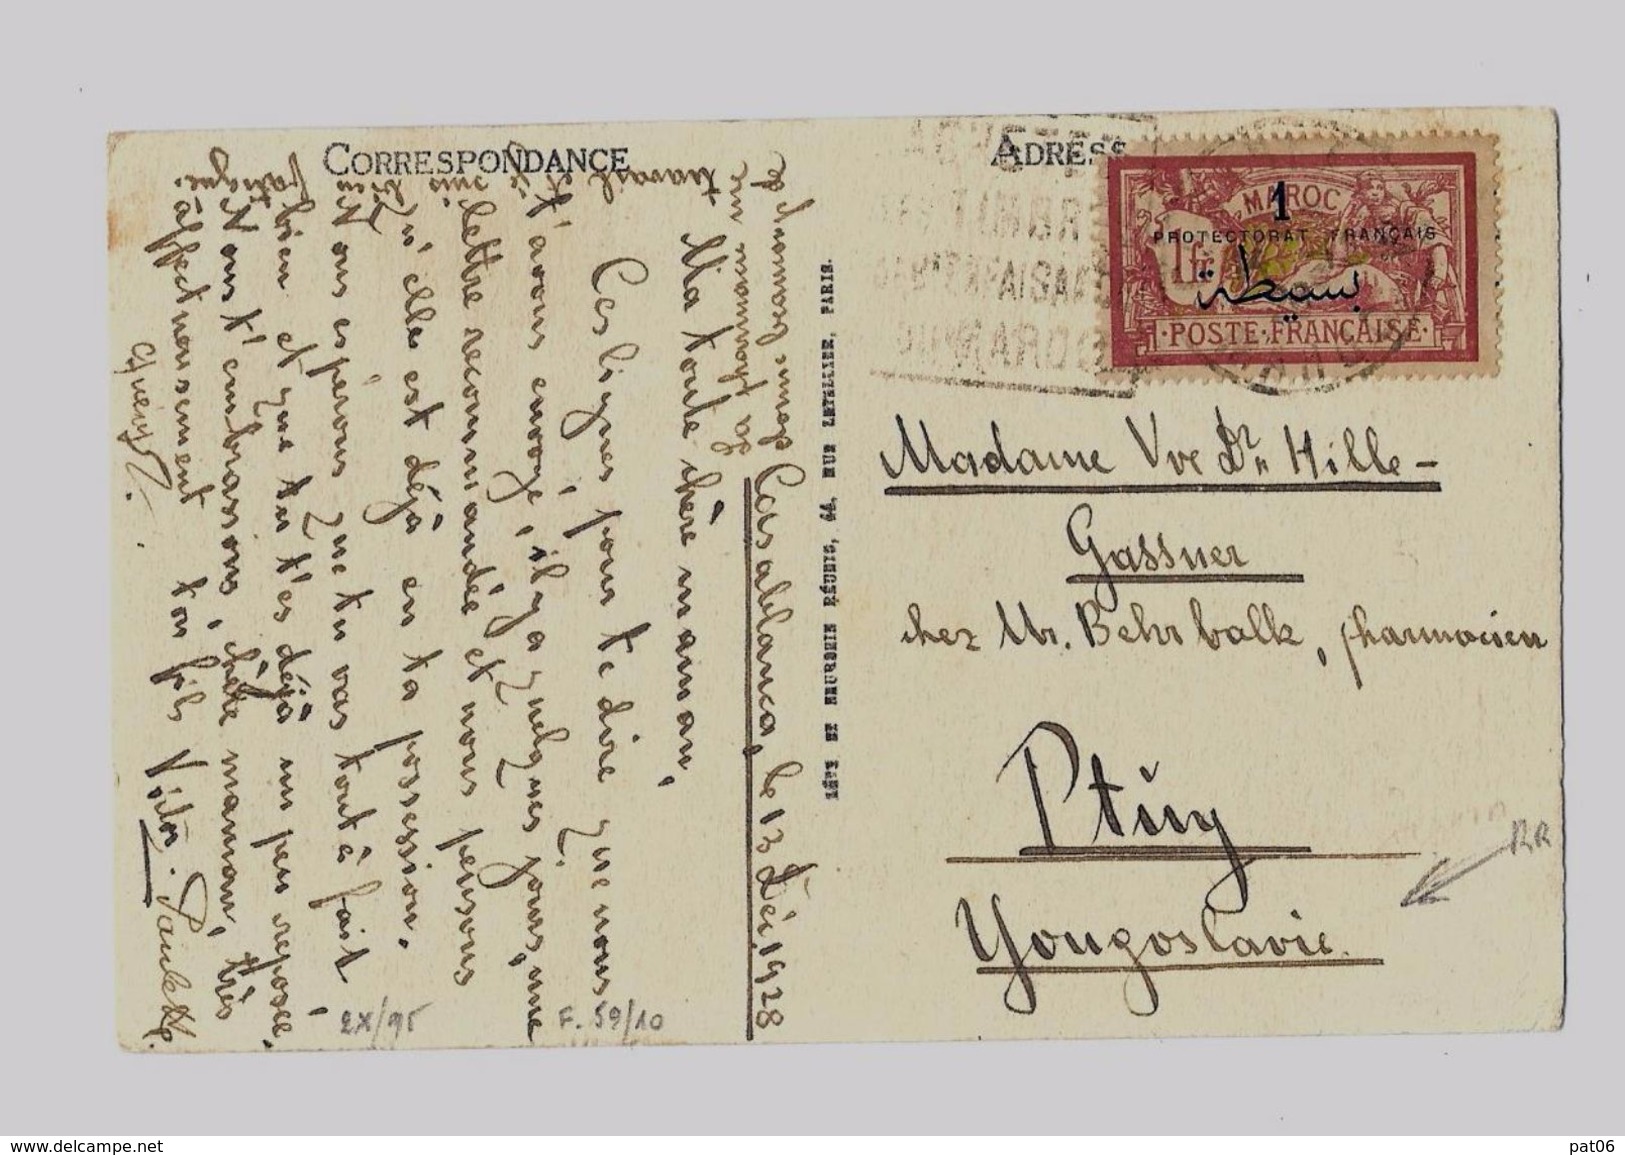 CORRESPONDANCE
Casablanca, le 13 Déc. 1928
Ma toute chère maman,
Ces lignes, pour te dire que nous
t'avons envoyé, il y a quelques jours, une
lettre recommandée et nous pensons
qu'elle est déjà en ta possession.
Nous espérons que tu vas tout à fait
bien et que tu t'es déjà un peu reposée,
Nous t'embrassons, chère maman, très
affectueusement ton fils Victor. Paulette.
travail
suis bien
fatigué.
LÉVY ET NEURDEIN RÉUNIS, 44, RUE LETELLIER, PARIS.
ADRESS
MAROC
1
PROTECTORAT FRANÇAIS
1 fr
بسيطة
POSTE FRANÇAISE
Madame Vve Dr. Hille-
Gassner
chez Mr. Behrbalk, pharmacien
Ptuy
Yougoslavie.
RR
2X/95
F. 59/10
www.delcampe.net
pat06